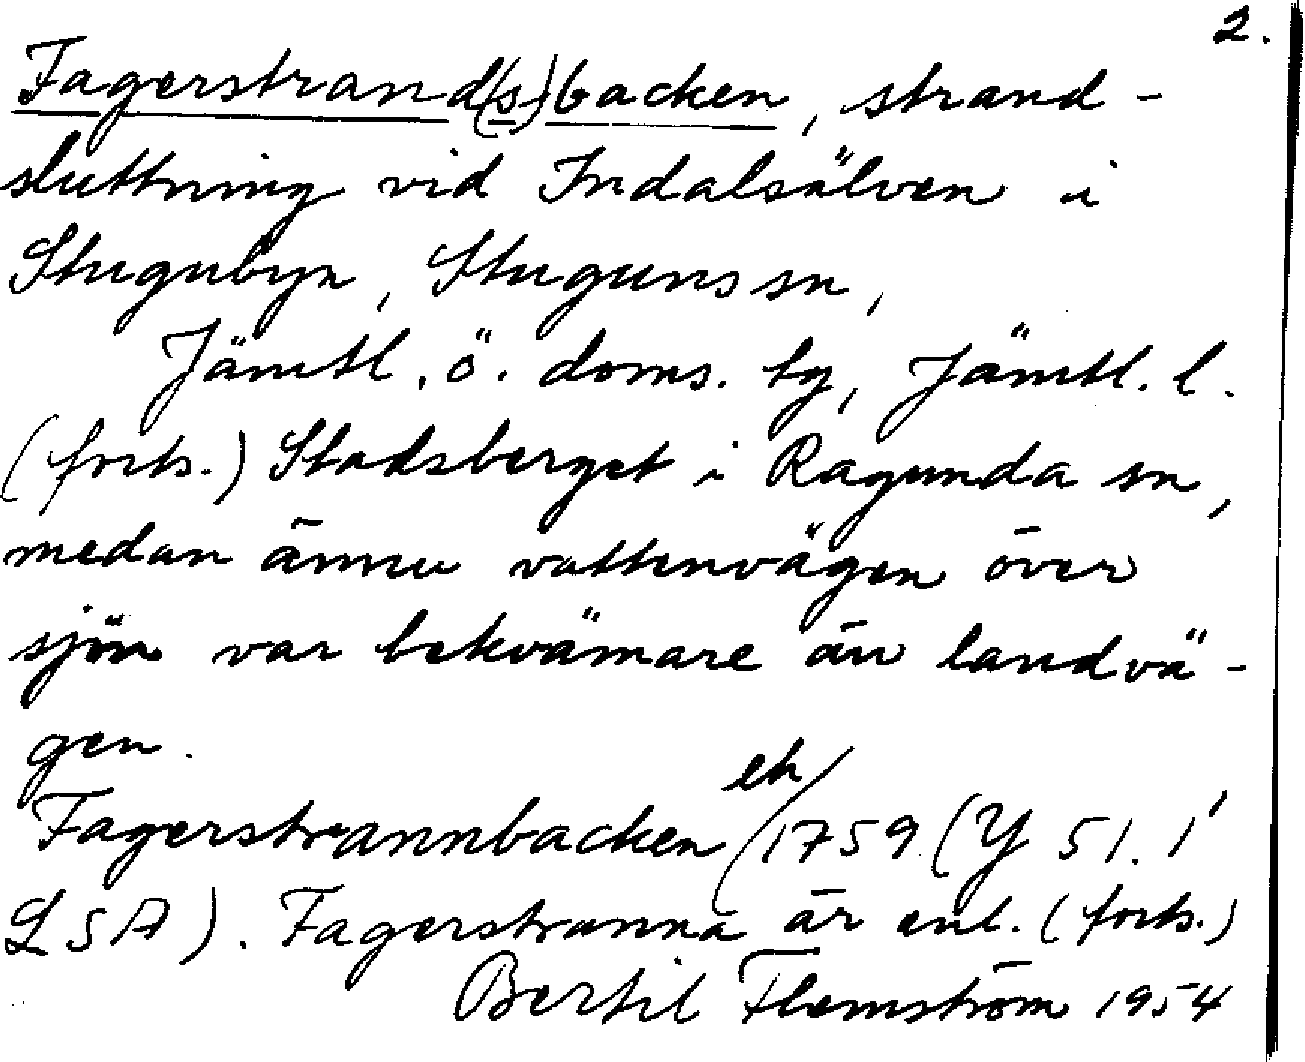 2.
Fagerstrand(s)backen, strand-
sluttning vid Indalsälven i
Stugubyn, Stuguns sn,
Jämtl. ö. doms. tg, Jämtl. l.
(forts.) Stadsberget i Ragunda sn,
medan ännu vattenvägen över
sjön var bekvämare än landvä-
gen.
Fagerstrannbacken eh/1759 (Y 51. 1'
LSA). Fagerstranna är enl. (forts.)
Bertil Flemström 1954